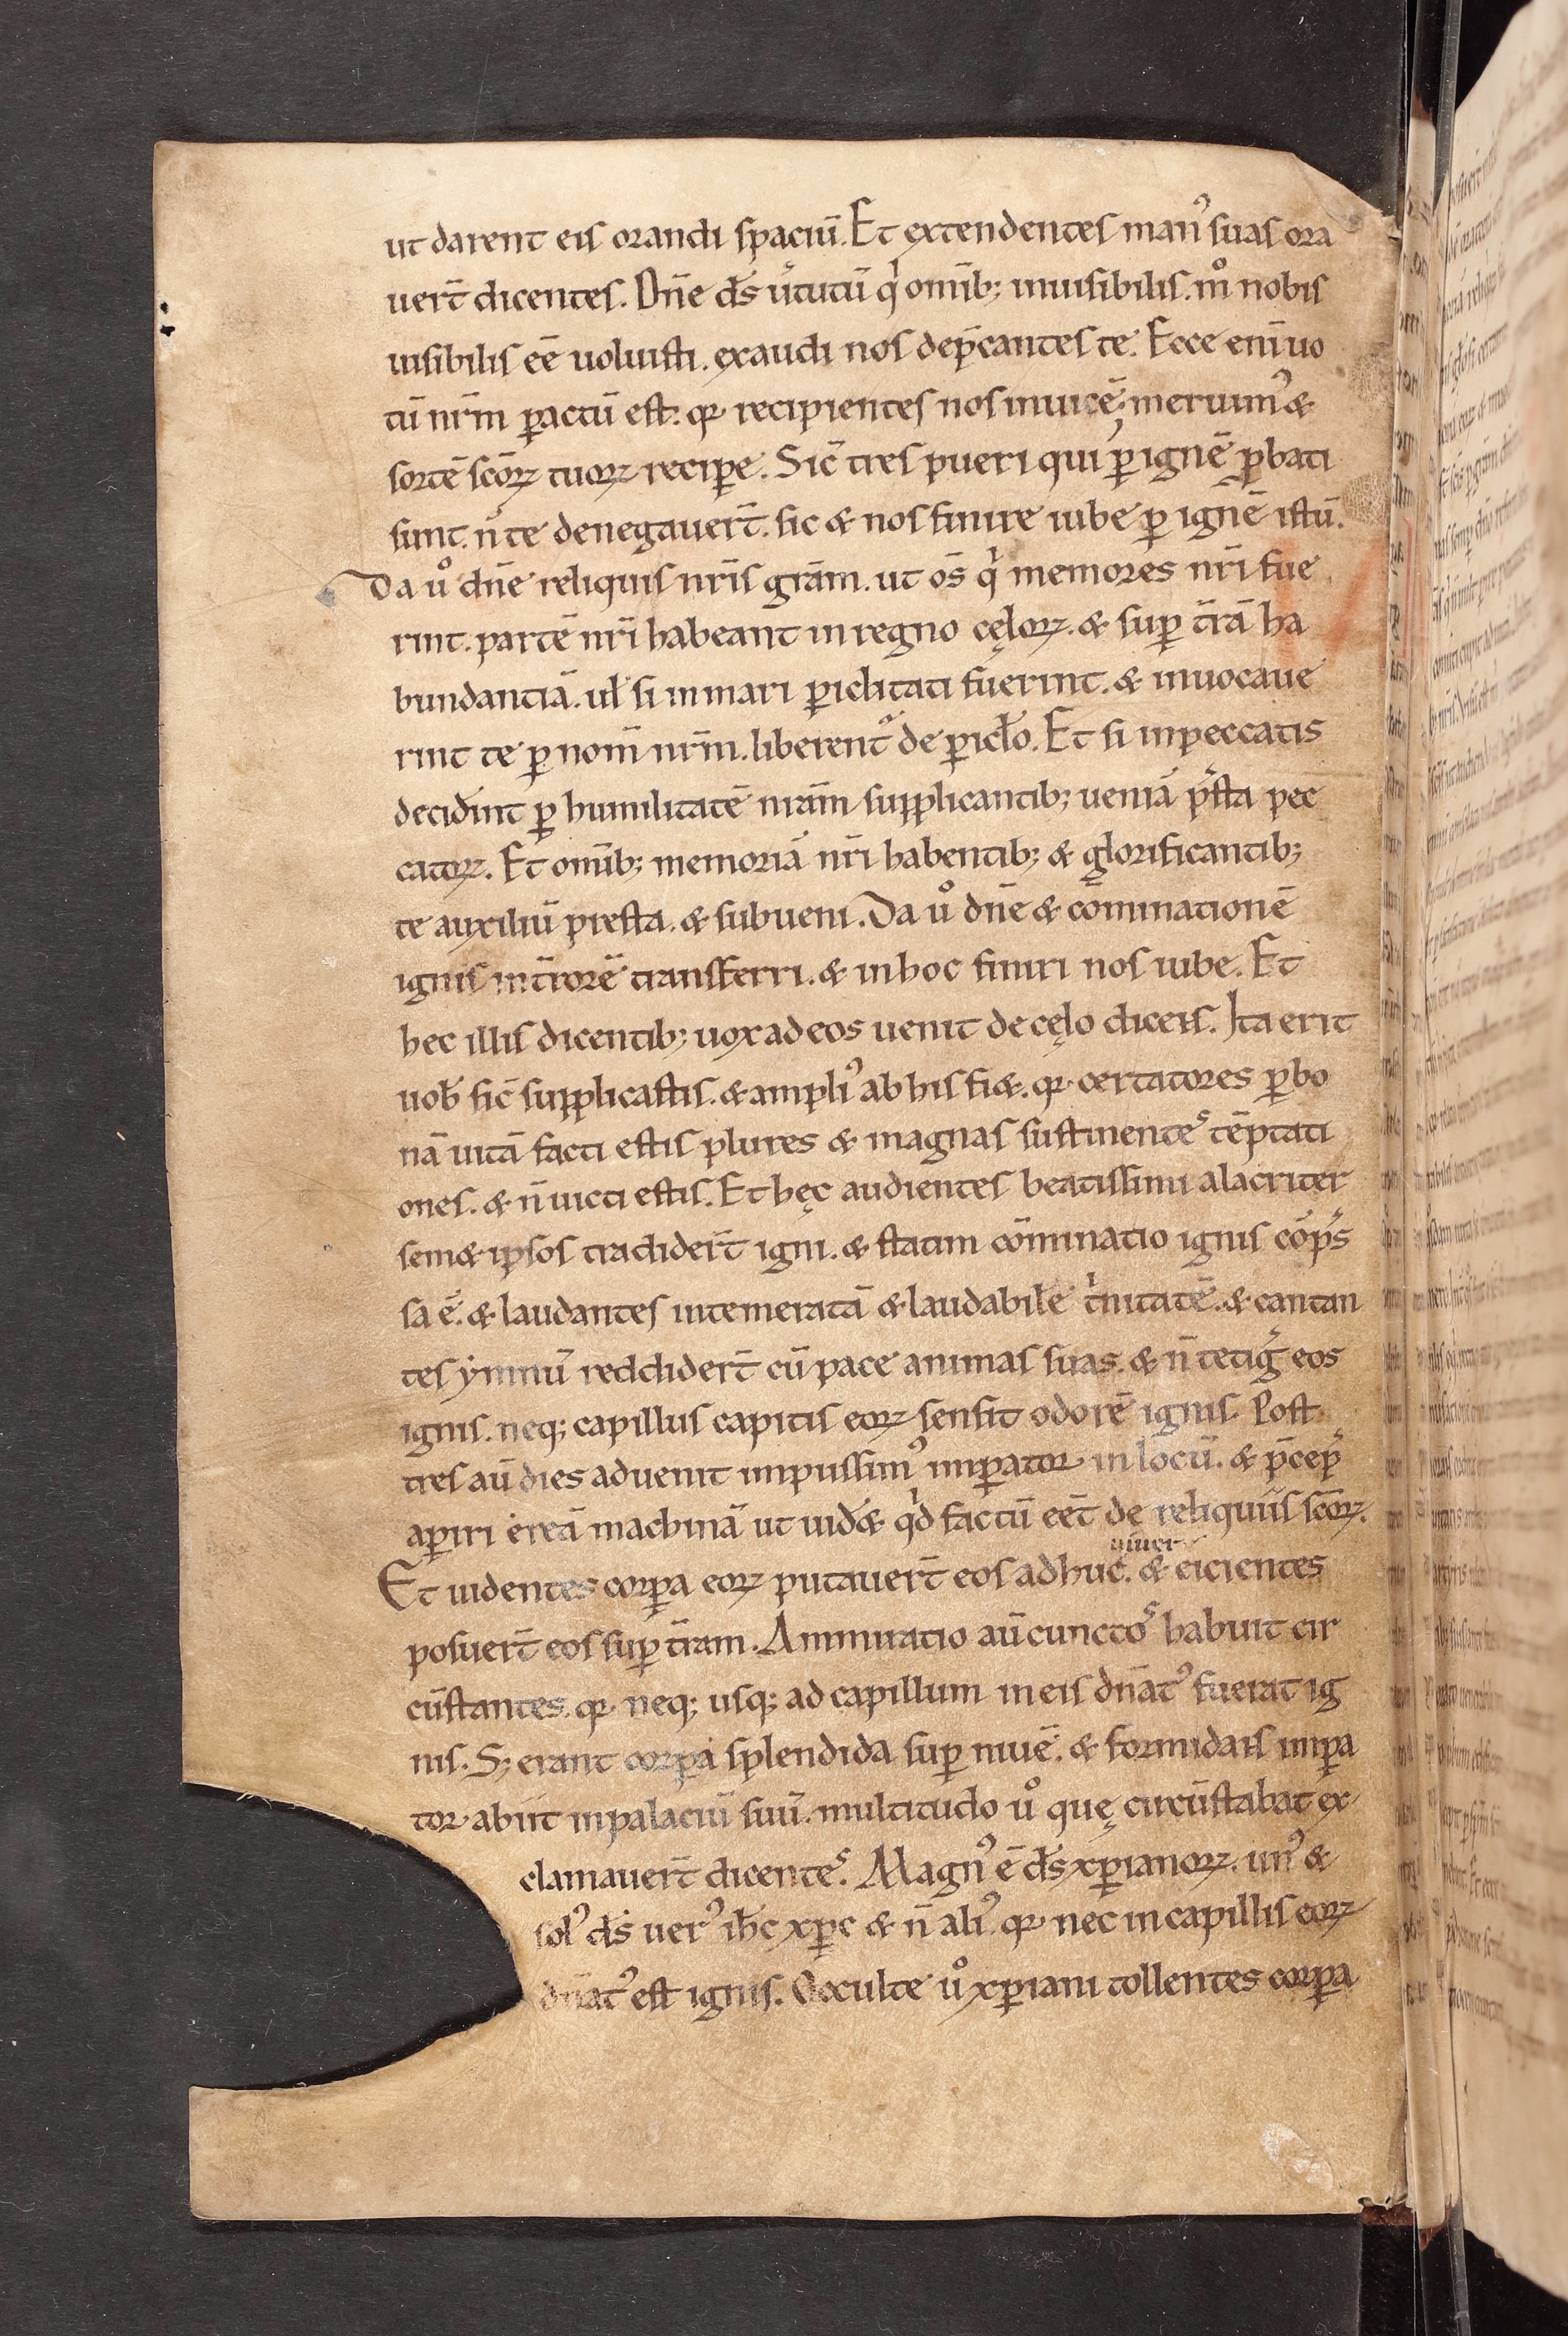 ut darent eis orandi spaciū. Et extendentes man᾿ suas ora
uer̄t dicentes. Dn̄e ds̄ u̓tutū qͥ omib; inuisibilis. m̊ nobis
uisibilis eē uoluisti. exaudi nos dep̄cantes te. Ecce eni᷒ uo
tū nr̄m ꝑactū est. qꝛ recipientes nos inuicē; meruim᾿ &
sortē sc̄oꝝ tuoꝝ recipe. Sic̄ tres pueri qui ꝑ ignē ꝓbati
sunt. n̄ te denegauer̄t. sic & nos finire iube ꝑ ignē istū.
Da ů dn̄e reliquiis nr̄is grām. ut os̄ qͥ memores nr̄i fue
rint. partē nr̄i habeant in regno cęloꝝ. & suꝑ tr̄ā ha
bundantiā. ul̄ si in mari ꝑiclitati fuerint. & inuocaue
rint te ꝑ nom̄ nr̄m. liberent᾿ de ꝑicl̄o. Et si in peccatis
decid̄int ꝑ humilitatē nr̄am supplicantib; ueniā p̄sta pec
catoꝝ. Et omib; memoriā nr̄i habentib; & glorificantib;
te auxiliū presta. & subueni. Da ů dn̄e & cōminationē
ignis in tr̄orē transferri. & in hoc finiri nos iube. Et
hec illis dicentib; uox ad eos uenit de cęlo dicens. Ita erit
uob̄ sic̄ supplicastis. & ampli᾿ ab his fi&. qꝛ certatores ꝑ bo
nā uitā facti estis plures & magnas sustinentes tēptati
ones. & n̄ uicti estis. Et hęc audientes beatissimi alacriter
sem& ipsos tradider̄t igni. & statim cōminatio ignis cōp̄s
sa ē. & laudantes intemeratā & laudabilē tͥnitatē. & cantan
tes ymnū reddider̄t cū pace animas suas. & n̄ tetiḡ eos
ignis. neq; capillus capitis eoꝝ sensit odorē ignis. Post
tres aū dies aduenit impiissim᾿ imꝑator in locū. & p̄cep̄
aꝑiri ereā machinā ut uid& qͥd factū eēt de reliquiis sc̄oꝝ.
uiuer
Et uidentes corꝑa eoꝝ putauer̄t eos adhuc. & eicientes
posuer̄t eos suꝑ tr̄am. Ammiratio aū cunctos habuit cir
cūstantes. qꝛ neq; usq; ad capillum in eis dn̄at᾿ fuerat ig
nis. S; erant corꝑa splendida suꝑ niuē. & formidans imꝑa
tor abiit in palaciū suū. multitudo ů quę circūstabat ex
clamauer̄t dicentes. Magn᾿ ē ds̄ xp̄ianoꝝ. un᾿ &
sol᾿ ds̄ uer᾿ ih̄c xp̄c & n̄ ali᾿. qꝛ nec in capillis eoꝝ
dn̄at᾿ est ignis. Occulte ů xp̄iani tollentes corꝑa